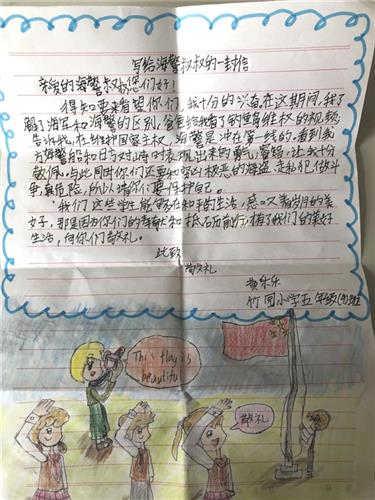 写给海警叔叔的一封信
亲爱的海警叔叔您们好！
得知要来看望你们，我十分的兴奋在这期间，我了
解了海军和海警的区别，爸爸给我看了钓鱼岛维权的视频
告诉我，在维护国家主权，海警是冲在第一线的，看到我
方海警船和日方对峙时表现出来的勇，让我十分
敬佩，与此同时你们还要和穷凶极恶的海盗，走私犯做斗
争，真危险，所以请你们要保护自己。
我们这些学生能够在和平的生活，感叹岁月的美
好，那是因为你们的奉献和抵历前行换了我们的美好
生活，向你们敬礼。
此致
敬礼
乐乐
竹园小学五年级(9)班
This flag is
beautiful
敬礼